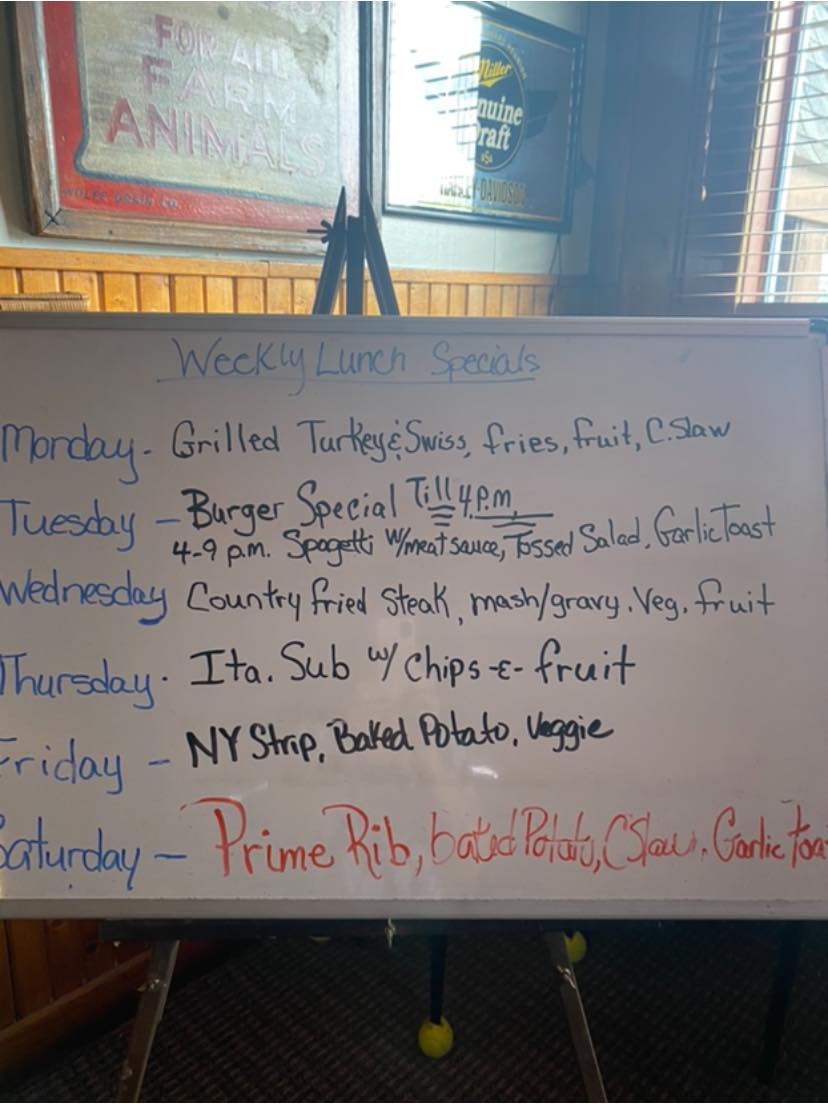 FOR ALL
FARM
ANIMALS
WOLFE GRAIN CO.
Miller
nuine
Draft
HARLEY-DAVIDSON
Weekly Lunch Specials
Monday - Grilled Turkey & Swiss, fries, fruit, C. Slaw
Tuesday - Burger Special Till 4 P.M.
4-9 p.m. Spagetti w/meat sauce, Tossed Salad, Garlic Toast
Wednesday Country fried Steak, mash/gravy. Veg. fruit
Thursday · Ita. Sub w/ Chips -&- fruit
Friday - NY Strip, Baked Potato, Veggie
Saturday - Prime Rib, baked Potato, C Slaw, Garlic Toa